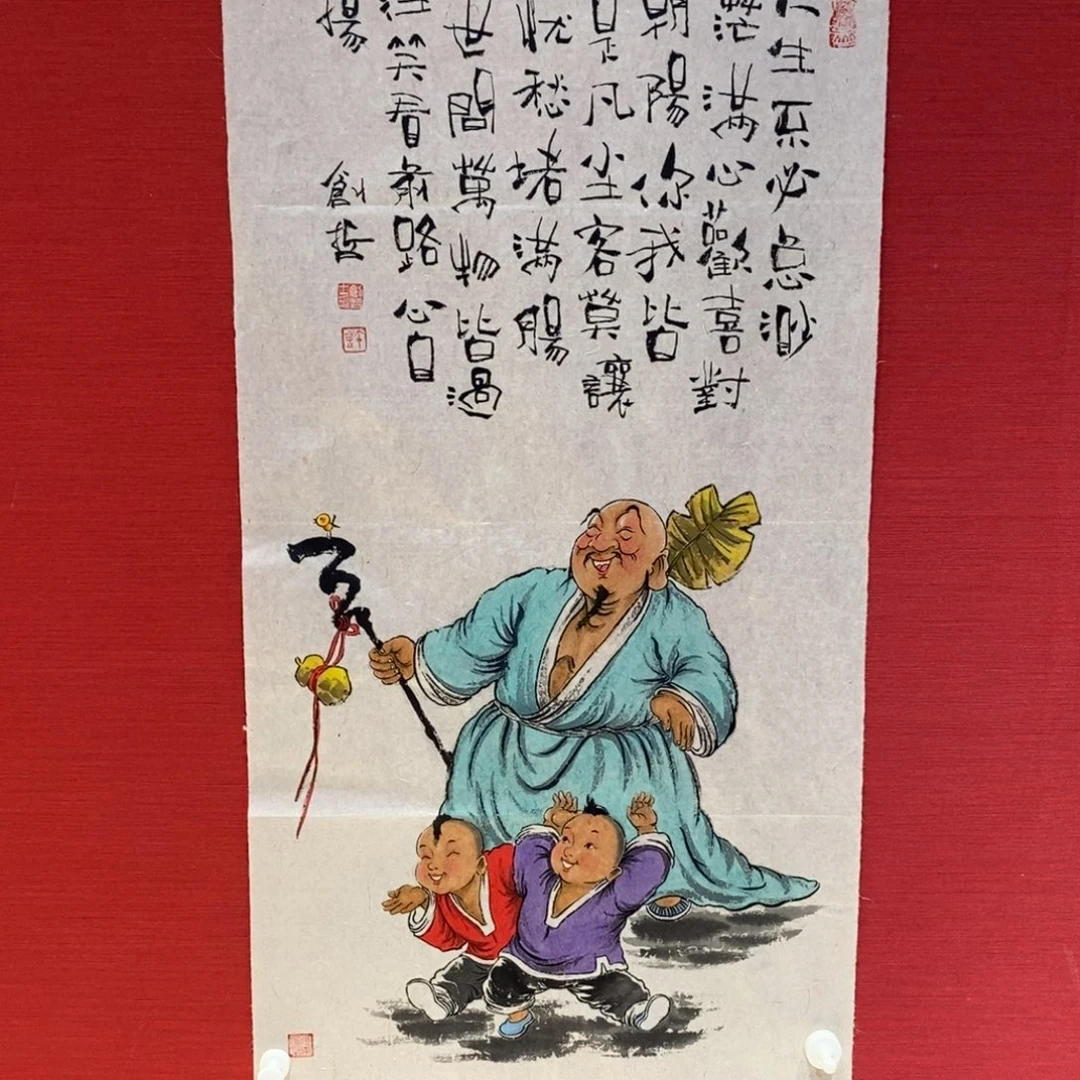 人生必总渺
茫滿心歡喜對
朝陽你我皆
是凡尘客莫讓
忧愁堵滿腸
世間萬物皆過
往笑看前路心自
揚
創哲